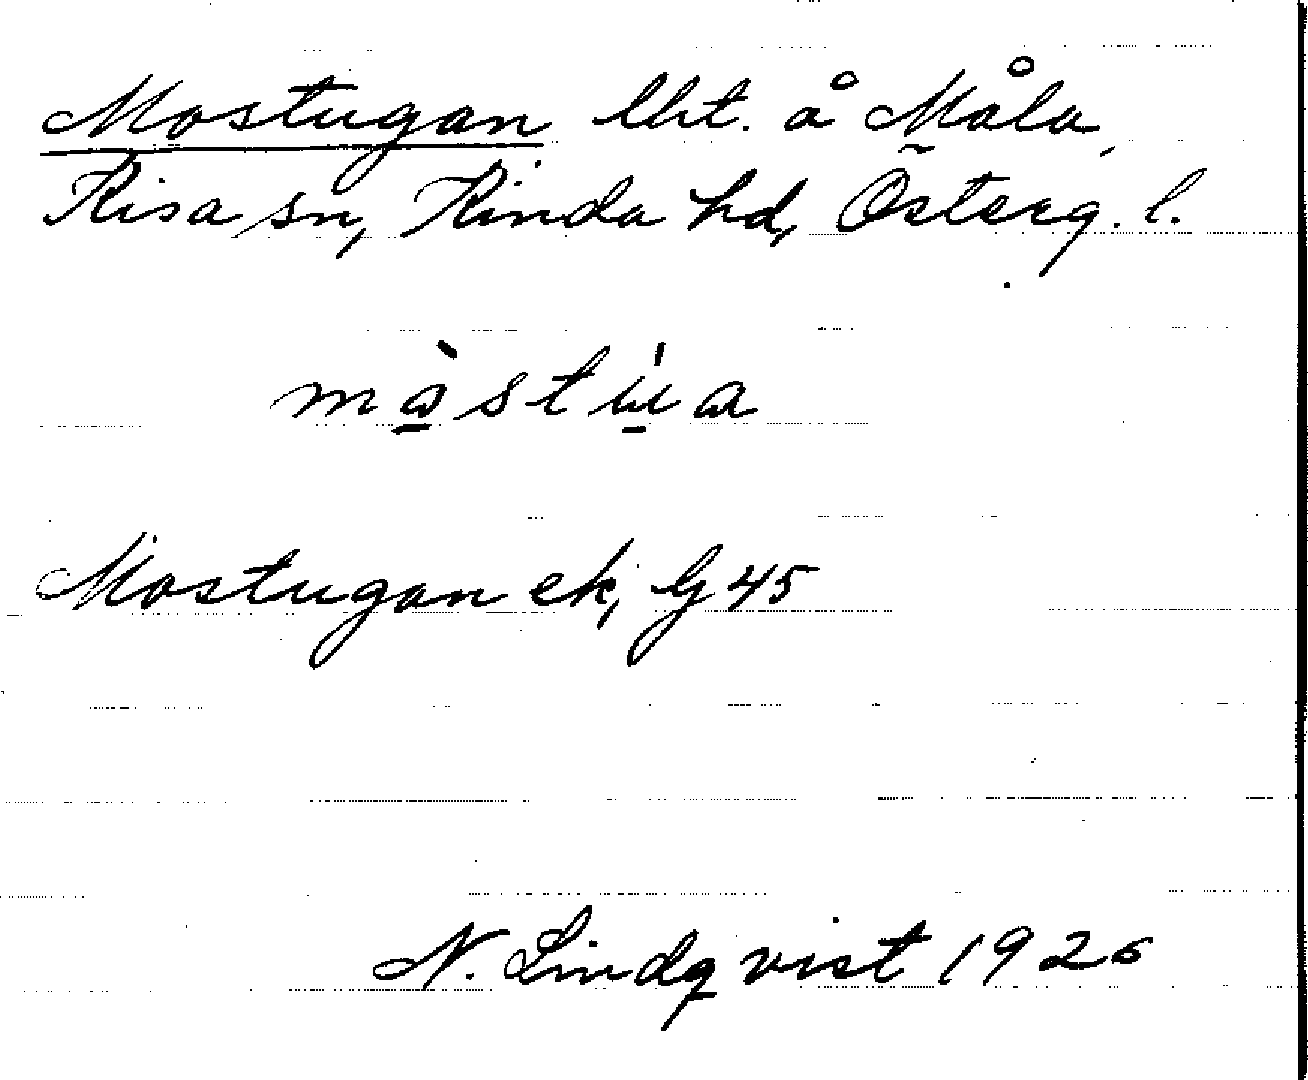 Mostugan lht. å Måla,
Kisa sn, Kinda hd, Österg. l.
mås̀tu̍a
Mostugan ek, G 45
N. Lindqvist 1926